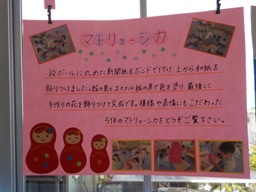 マトリョーシカ
段ボールに丸めた新聞紙をボンドで付け、上から和紙を
貼りつけました。絵の具とエナメル絵の具で色を塗り、最後に
手作りの花を飾りつけて完成です。模様や表情にもこだわった
5体のマトリョーシカをどうぞご覧下さい。